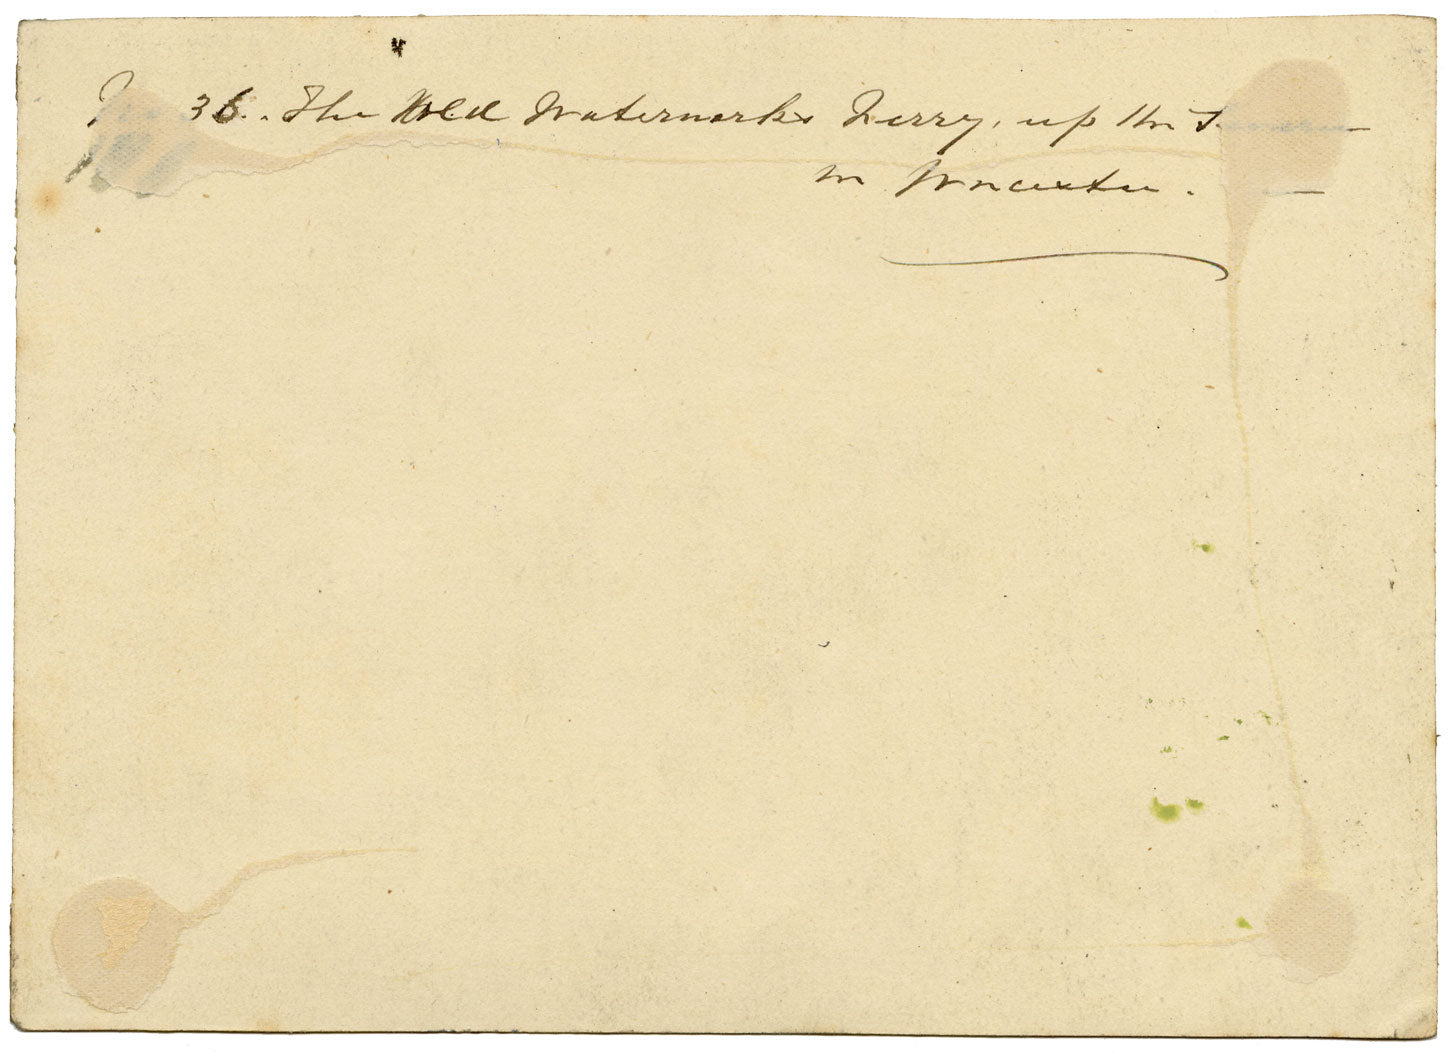 36. The Old Waterworks Ferry, up the
in Worcester.